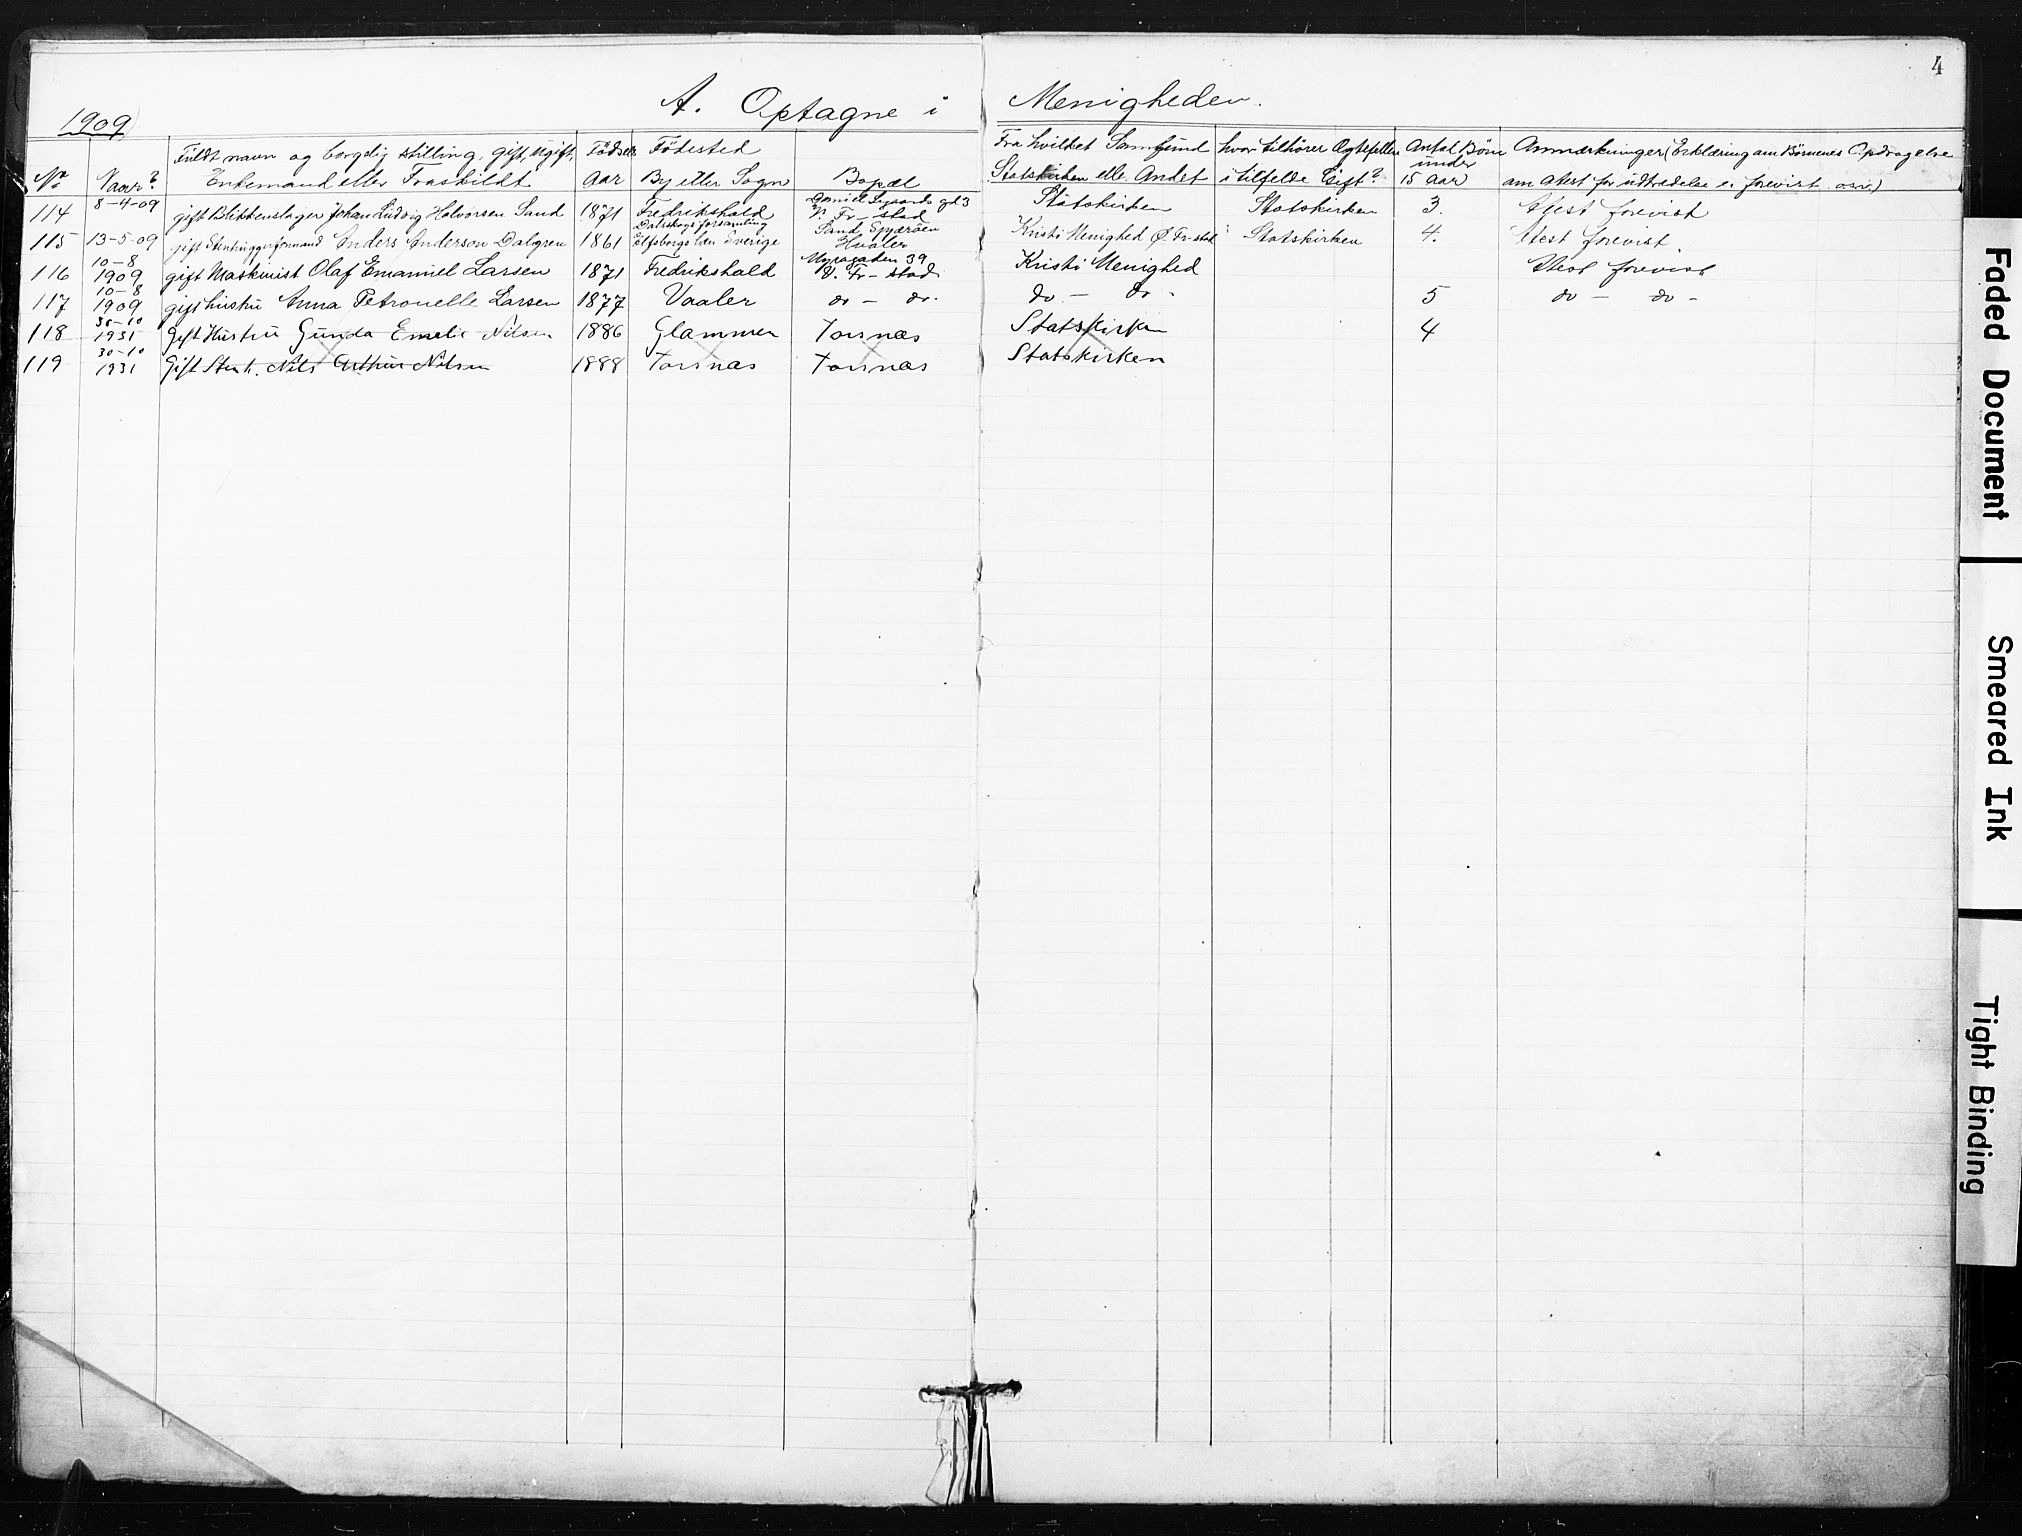 4
A. Optagne i Menigheden.
1909
No Naar? Fuldt navn og borgelig stilling, Gift, Ugift, Enkemand eller Fraskildt Fødsels Aar Fødested By eller Sogn Bopæl Fra hvilket Samfund Statskirken elle Andet hvor tilhører Ægtefellen i tilfelde Gift? Antal Børn under 15 Aar Anmærkninger (Erklæring om Børnenes Opdragelse om Atest for udtrædelse er forevist osv.)
114 8-4-09 gift Blikkenslager Johan Ludvig Halvorsen Sand 1871 Fredrikshald Daniel gd 3 V. Fr-stad Statskirken Statskirken 3. Atest forevist
115 13-5-09 gift Stenhuggerformand Anders Anderson Dalgren 1861 Dalskogs forsamling Elfsborgs Län Sverige Sand Spjærøen Hvaler Kristi Menighed Ø. Fr-stad Statskirken 4. Atest forevist.
116 10-8 1909 gift Maskinist Olaf Emanuel Larsen 1871 Fredrikshald Myragaden 39 V. Fr-stad Kristi Menighed Atest forevist
117 10-8 1909 gift hustru Anna Petronelle Larsen 1877 Vaaler do - do. do - do - 5 do - do -
118 30-10 1931 Gift Hustru Gunda Emelie Nilsen 1886 Glemmen Torsnæs Statskirken 4
119 30-10 1931 Gift Stenh. Nils Arthur Nilsen 1888 Torsnæs Torsnæs Statskirken
Faded Document
Smeared Ink
Tight Binding